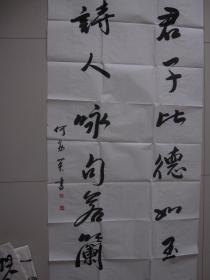 君子比德如玉
詩人咏句若蘭